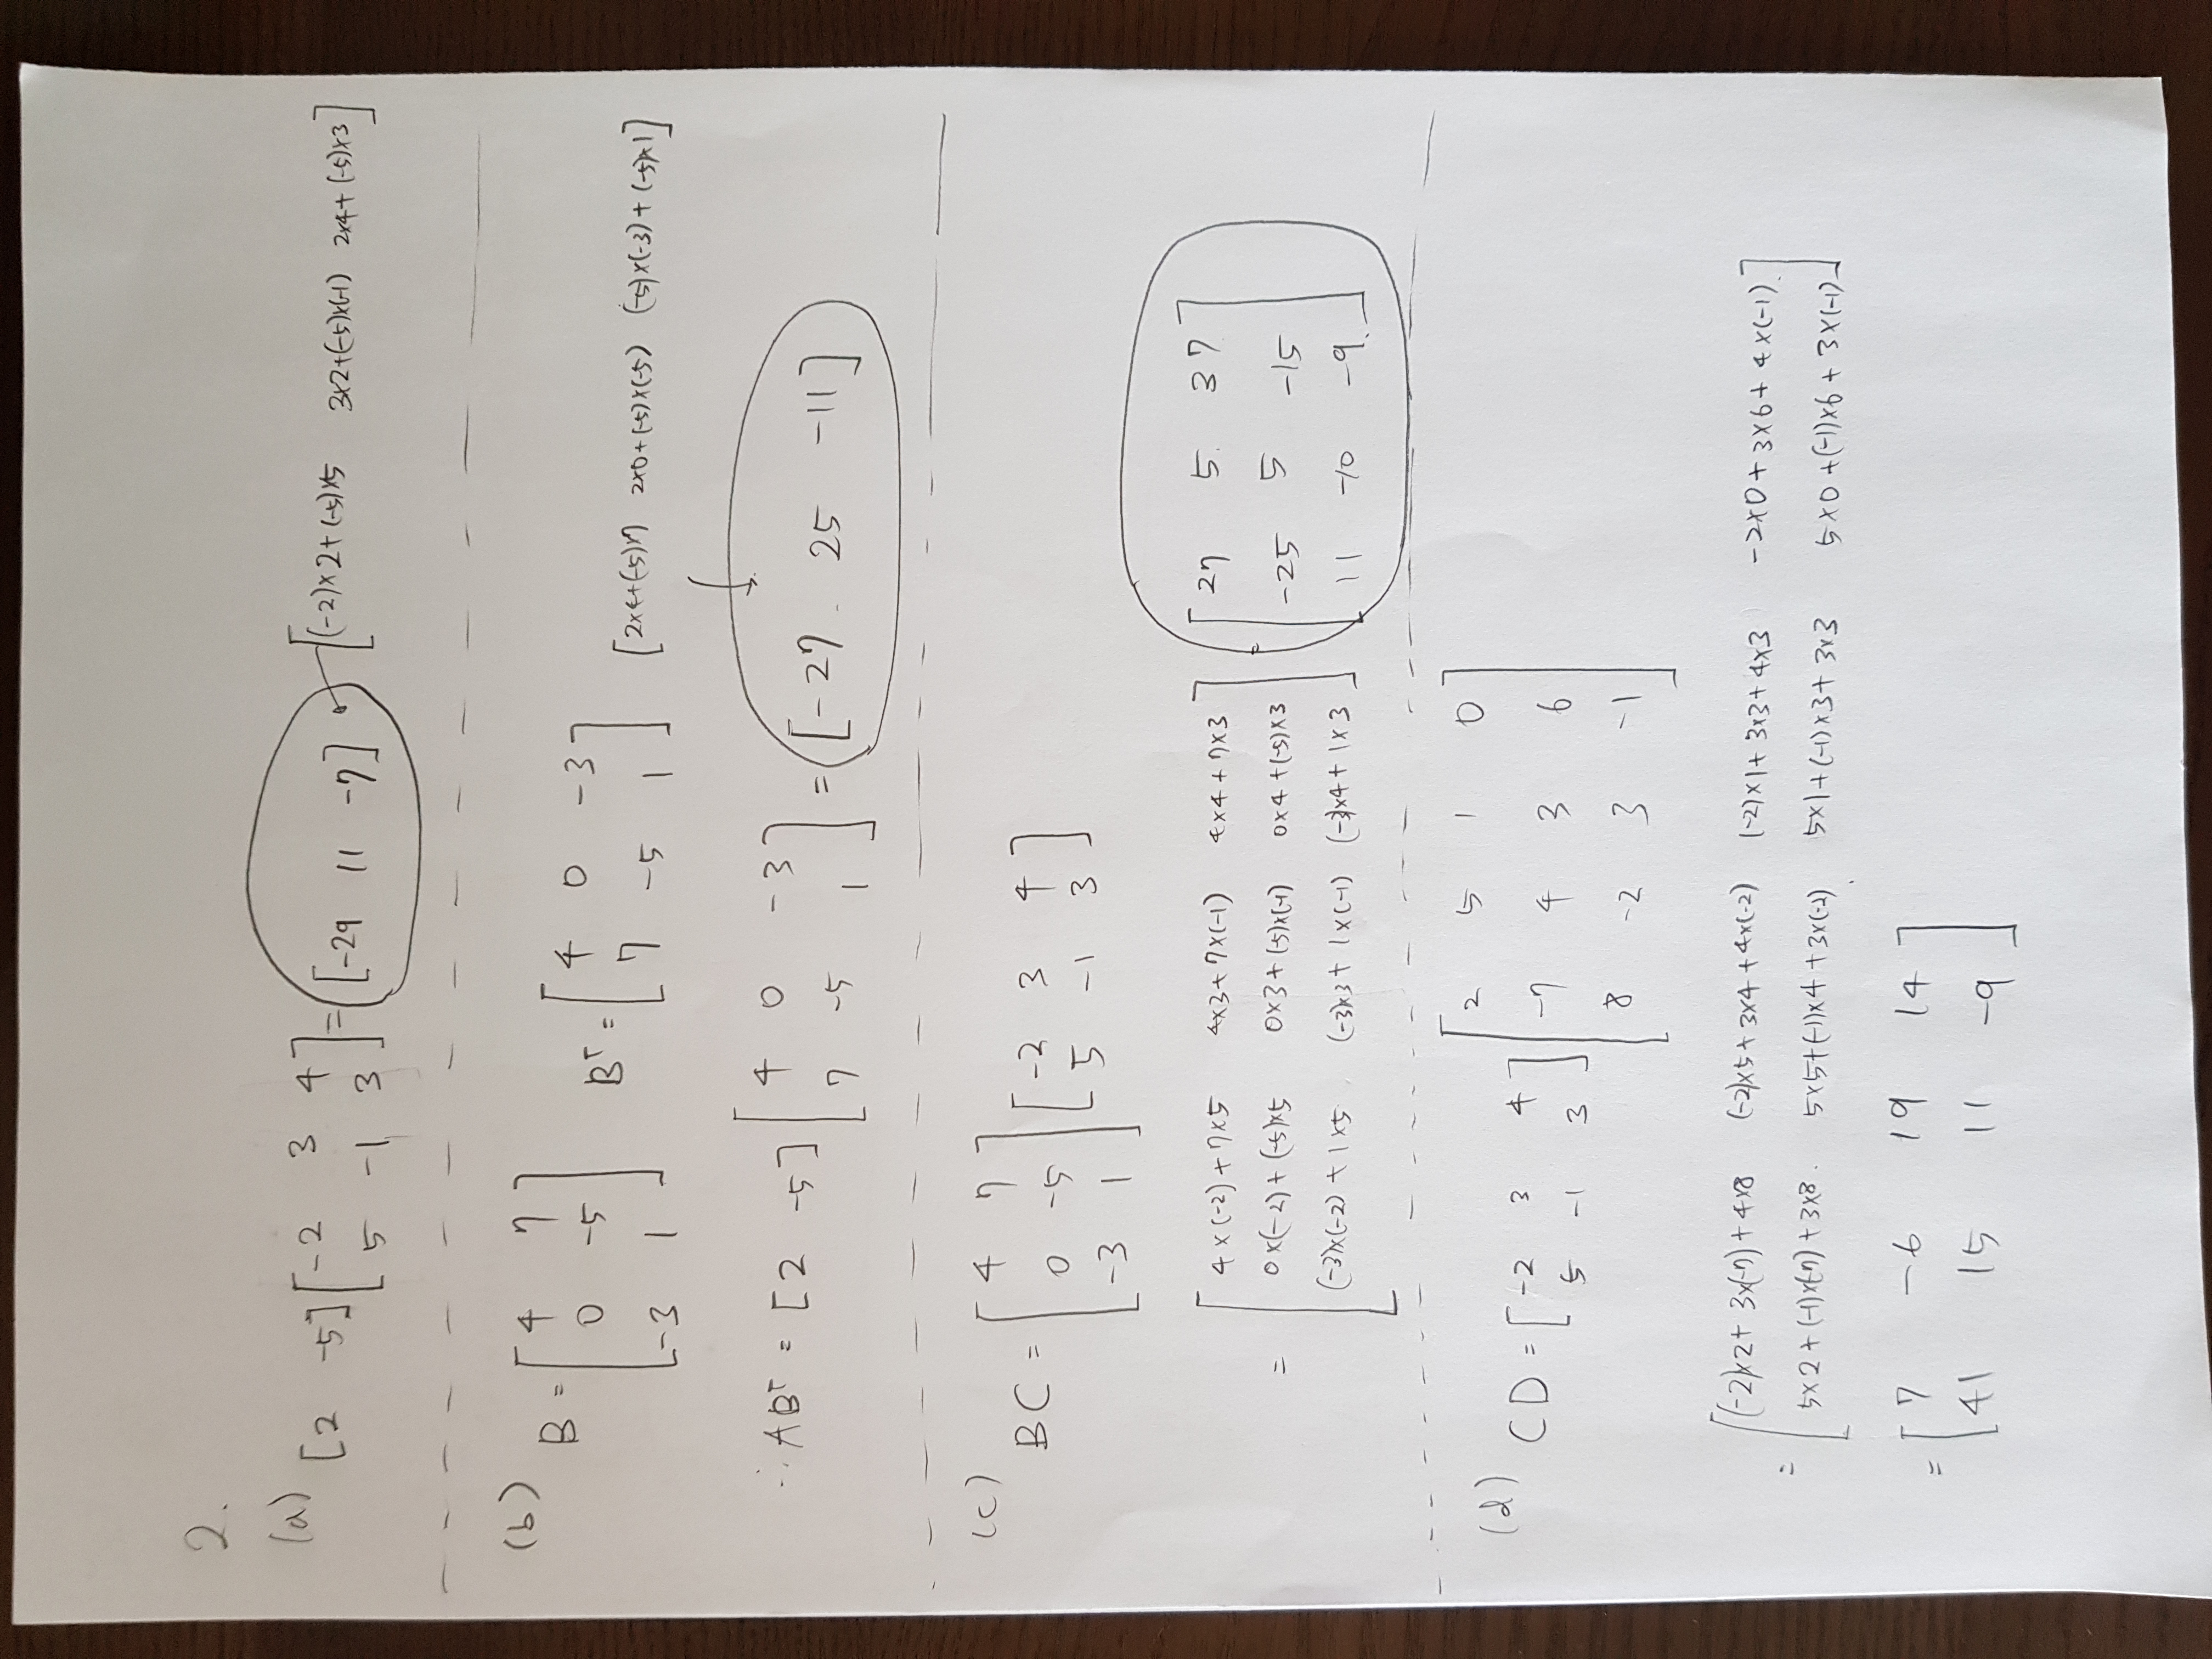 2.
(a) [2 -5] [-2 3 4
5 -1 3] = [-29 11 -7] [(-2)×2+(-5)×5 3×2+(-5)×(-1) 2×4+(-5)×3]
(b) B = [4 7
0 -5
-3 1]
Bᵀ = [4 0 -3
7 -5 1]
[2×4+(-5)×7 2×0+(-5)×(-5) (-5)×(-3)+(-5)×1]
∴ ABᵀ = [2 -5] [4 0 -3
7 -5 1] = [-27 25 -11]
(c) BC = [4 7
0 -5
-3 1] [-2 3 4
5 -1 3]
= [4×(-2)+7×5 4×3+7×(-1) 4×4+7×3
0×(-2)+(-5)×5 0×3+(-5)×(-1) 0×4+(-5)×3
(-3)×(-2)+1×5 (-3)×3+1×(-1) (-3)×4+1×3]
= [27 5 37
-25 5 -15
11 -10 -9]
(d) CD = [-2 3 4
5 -1 3] [2 5 1 0
-7 4 3 6
8 -2 3 -1]
= [(-2)×2+3×(-7)+4×8 (-2)×5+3×4+4×(-2) (-2)×1+3×3+4×3 -2×0+3×6+4×(-1)
5×2+(-1)×(-7)+3×8 5×5+(-1)×4+3×(-2) 5×1+(-1)×3+3×3 5×0+(-1)×6+3×(-1)]
= [7 -6 19 14
41 15 11 -9]